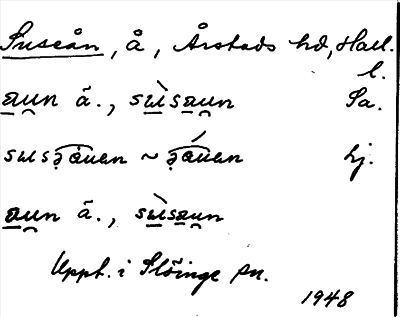 Suseån, å, Årstads hd, Hall. l.
aun ä., sùsaun Sa.
susǝauen ~ ǝáuen hj.
aun ä., sùsaun
Uppt. i Slöinge sn.
1948